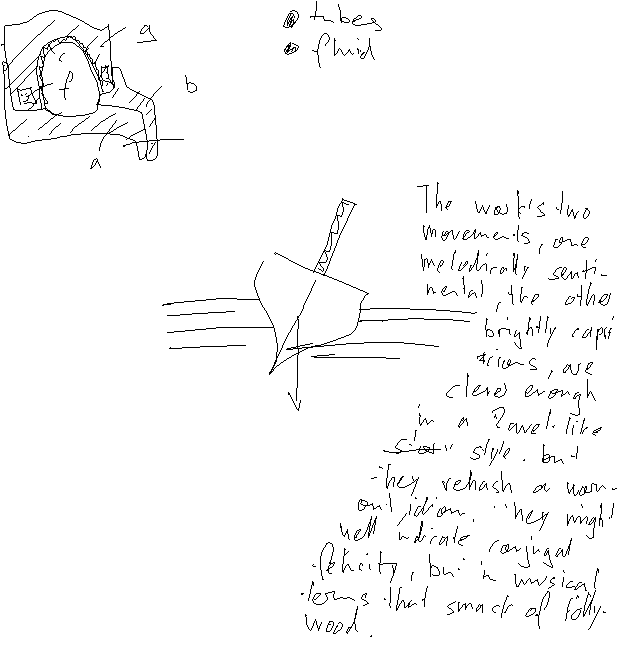 g
b
f
a
tubes
fluid
The work's two
movements, one
melodically senti-
mental, the other
brightly capri
cious, are
clever enough
in a Ravel-like
style. but
they rehash a worn-
out idiom. They might
well indicate conjugal
felicity, but in musical
terms that smack of folly-
wood.